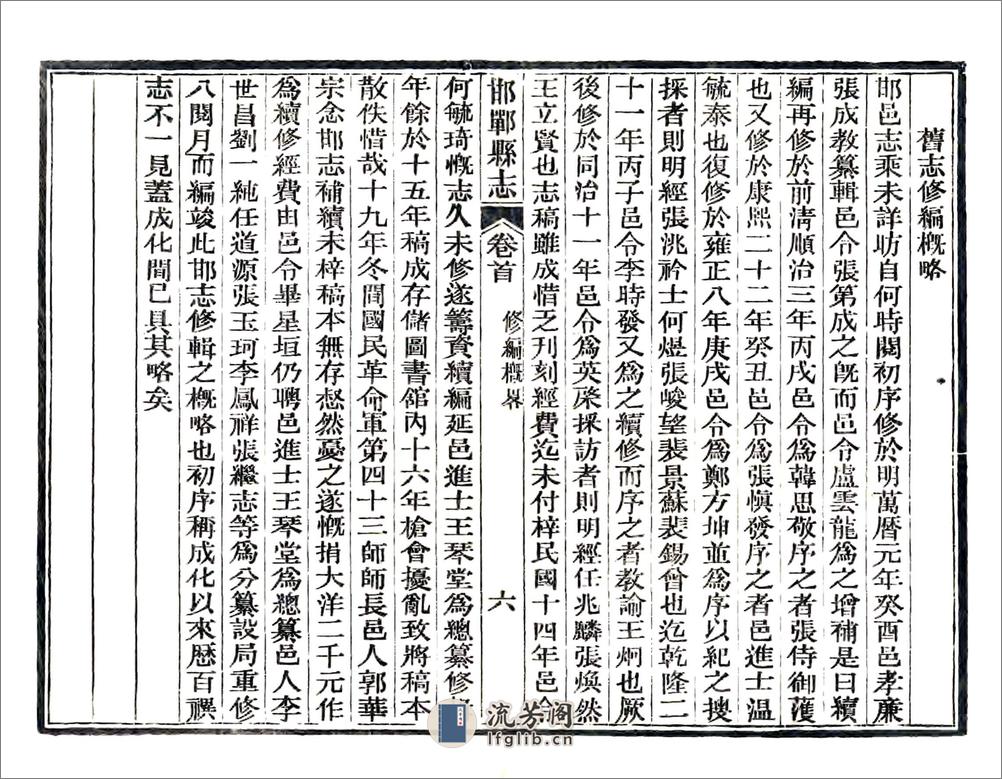 舊志修編概略
邯邑志乘未詳昉自何時閱初序修於明萬曆元年癸酉邑孝廉
張成教纂輯邑令張第成之既而邑令盧雲龍爲之增補是曰續
編再修於前清順治三年丙戌邑令爲韓思敬序之者張侍御蒦
也又修於康熙二十二年癸丑邑令爲張慎發序之者邑進士溫
毓泰也復修於雍正八年庚戌邑令爲鄭方坤並爲序以紀之搜
採者則明經張洮衿士何煜張峻望裴景蘇裴錫會也迄乾隆二
十一年丙子邑令李時發又爲之續修而序之者教諭王炯也厥
後修於同治十一年邑令爲英棨採訪者則明經任兆麟張煥然
王立賢也志稿雖成惜乏刊刻經費迄未付梓民國十四年邑令
邯鄲縣志 卷首 修編概畧 六
何毓琦慨志久未修遂籌資續編延邑進士王琴堂爲總纂修
年餘於十五年稿成存儲圖書館內十六年槍會擾亂致將稿本
散佚惜哉十九年冬間國民革命軍第四十三師師長邑人郭華
宗念邯志補續未梓稿本無存惄然憂之遂慨捐大洋二千元作
爲續修經費由邑令畢星垣仍聘邑進士王琴堂爲總纂邑人李
世昌劉一純任道源張玉珂李鳳祥張繼志等爲分纂設局重修
八閱月而編竣此邯志修輯之概略也初序稱成化以來歷百禩
志不一見蓋成化間已具其略矣
流芳阁
lfglib.cn